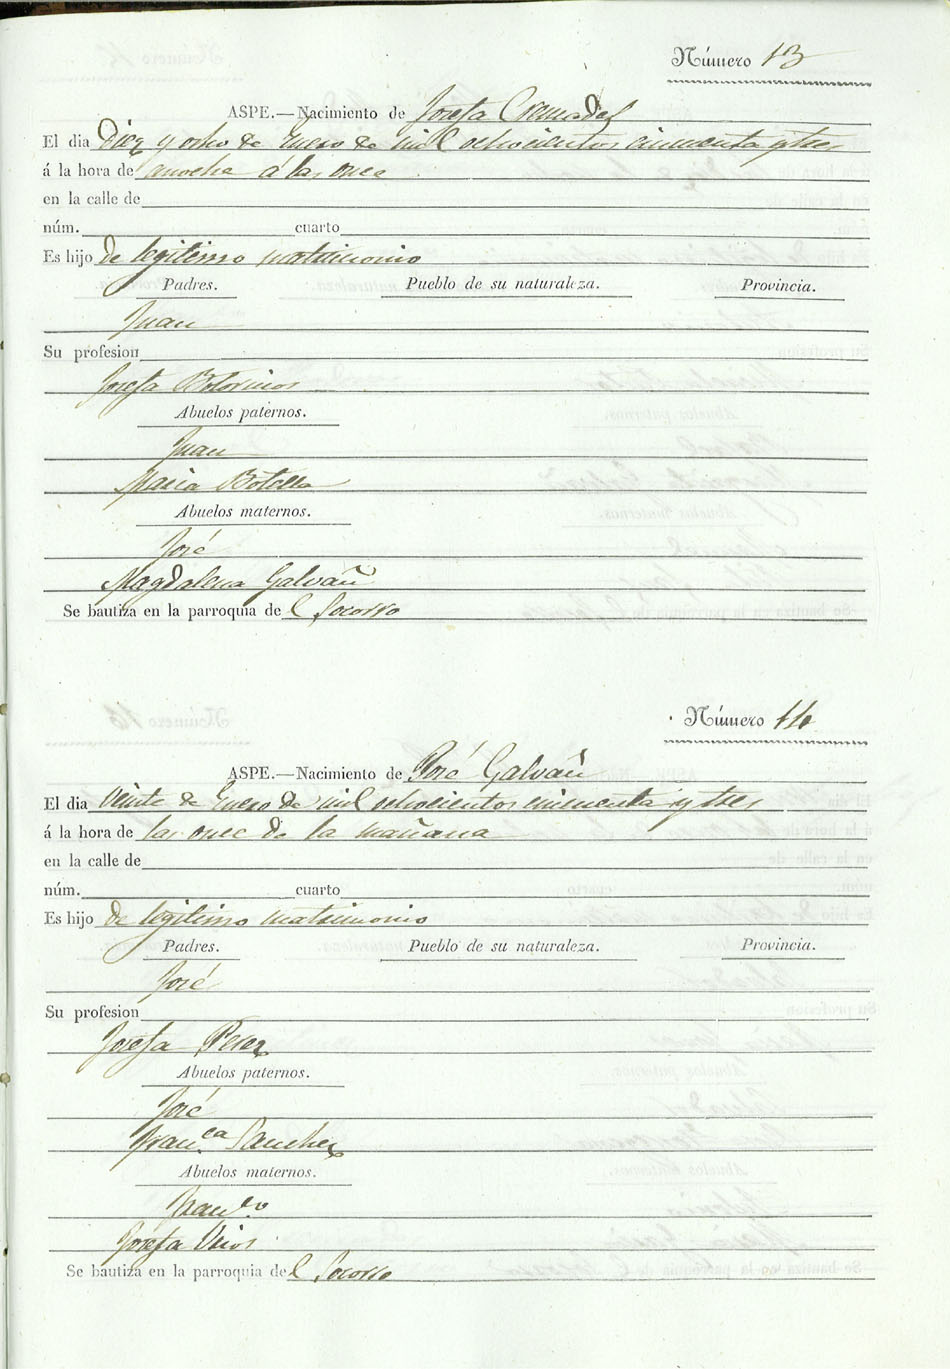 Número 13
ASPE.—Nacimiento de Josefa Cremades
El dia Diez y ocho de Enero de mil ochocientos cincuenta y tres
á la hora de anoche á las once
en la calle de
núm. cuarto
Es hijo de legitimo matrimonio
Padres. Pueblo de su naturaleza. Provincia.
Juan
Su profesion
Josefa
Abuelos paternos.
Juan
Maria Botella
Abuelos maternos.
José
Magdalena Galvañ
Se bautiza en la parroquia de l Socorro
Número 14
ASPE.—Nacimiento de José Galvañ
El dia Veinte de Enero de mil ochocientos cincuenta y tres
á la hora de las once de la mañana
en la calle de
núm. cuarto
Es hijo de legitimo matrimonio
Padres. Pueblo de su naturaleza. Provincia.
José
Su profesion
Josefa Perez
Abuelos paternos.
José
Fran.ca Sanchez
Abuelos maternos.
Fran.co
Josefa
Se bautiza en la parroquia de l Socorro